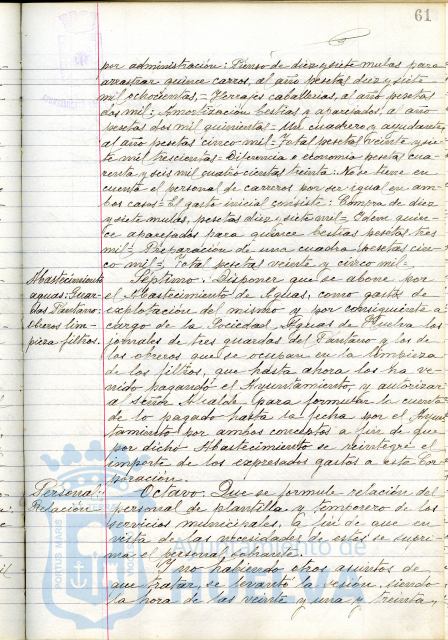 61
por administración: Pienso de diez y siete mulas para
arrastrar quince carros, al año pesetas diez y siete
mil ochocientas,= Herrajes caballerías, al año pesetas
dos mil: Amortización bestias y aparejados, al año
pesetas dos mil quinientas= Un cuadrero y ayudante
al año pesetas cinco mil= Total pesetas veinte y sie-
te mil trescientas= Diferencia o economía pesetas cua-
renta y seis mil cuatrocientas treinta: No se tiene en
cuenta el personal de carreros por ser igual en am-
bos casos= El gasto inicial consiste: Compra de diez
y siete mulas, pesetas diez y siete mil= Idem quin-
ce aparejados para quince bestias pesetas tres
mil= Preparación de una cuadra pesetas cin-
co mil= Total pesetas veinte y cinco mil=
Abastecimiento
aguas: Guar-
das Pantano:
obreros lim-
pieza filtros.
Septimo: Disponer que se abone por
el Abastecimiento de Aguas, como gastos de
explotación del mismo y por consiguiente a
cargo de la Sociedad Aguas de Huelva los
jornales de tres guardas del Pantano y los de
los obreros que se ocupan en la limpieza
de los filtros, que hasta ahora los ha ve-
nido pagando el Ayuntamiento, y autorizar
al Señor Alcalde para formular la cuenta
de lo pagado hasta la fecha por el Ayun-
tamiento por ambos conceptos a fin de que
por dicho Abastecimiento se reintegre el
importe de los expresados gastos a esta Cor-
poración.
Personal:
Relación
Octavo: Que se formule relación del
personal de plantilla y temporero de los
servicios municipales, a fin de que en
vista de las necesidades de estos se supri-
ma el personal sobrante.
Y no habiendo otros asuntos de
que tratar se levantó la sesión, siendo
la hora de las veinte y una y treinta,
PORTUS MARIS
Ayuntamiento de